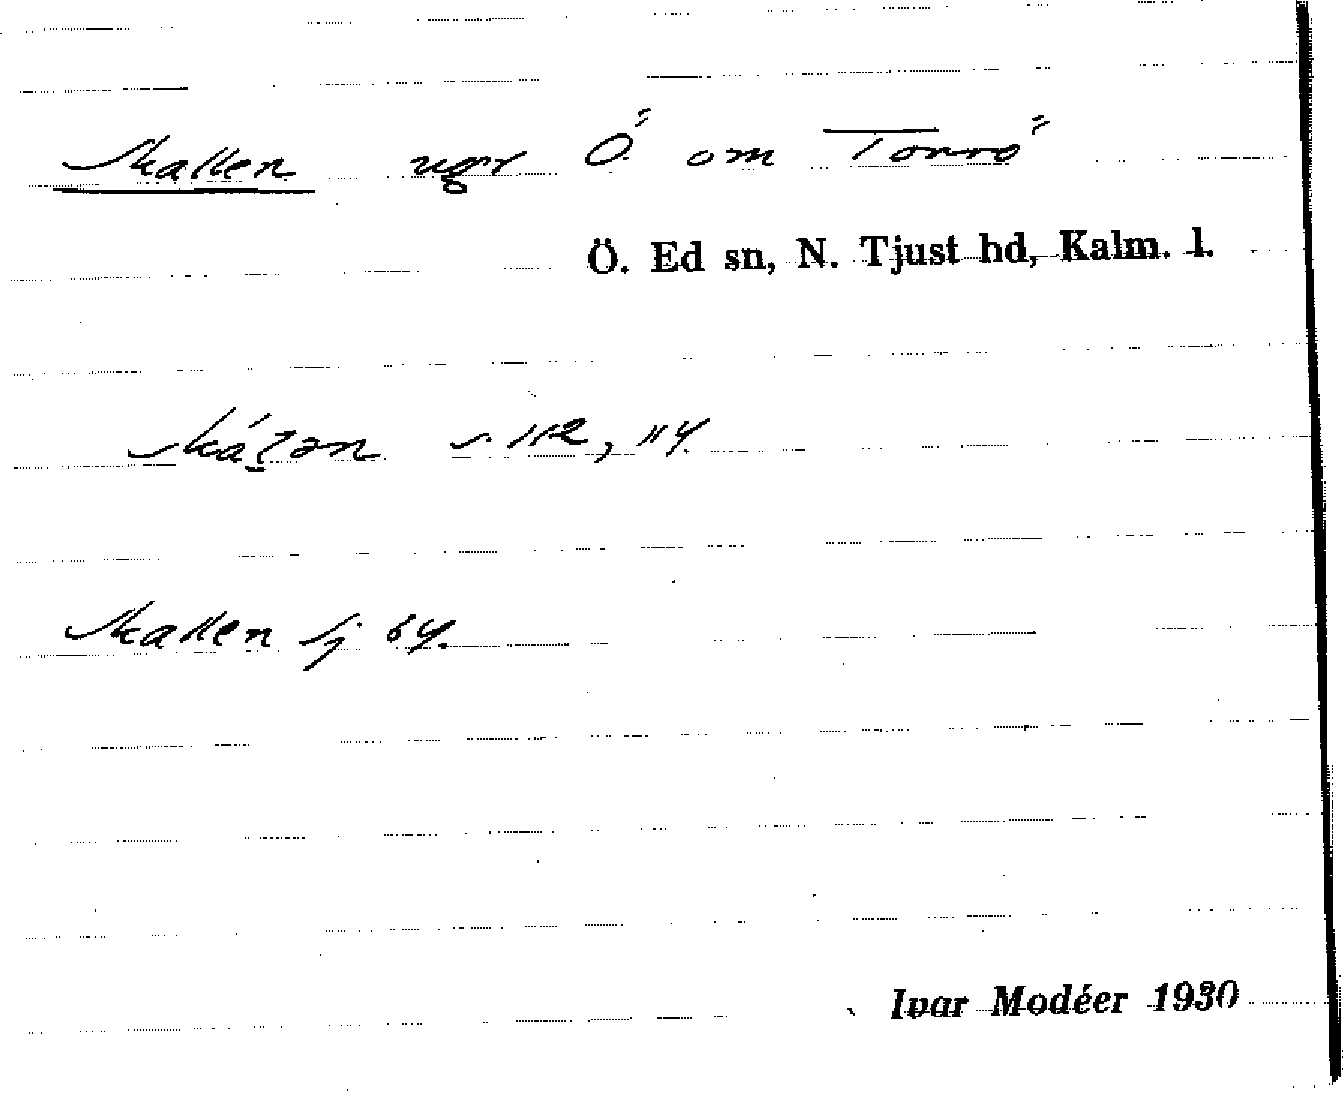 Skallen ugr Ö. om Torrö
Ö. Ed sn, N. Tjust hd, Kalm. l.
skálən s. 112, 114.
Skallen sj 64.
Ivar Modéer 1930